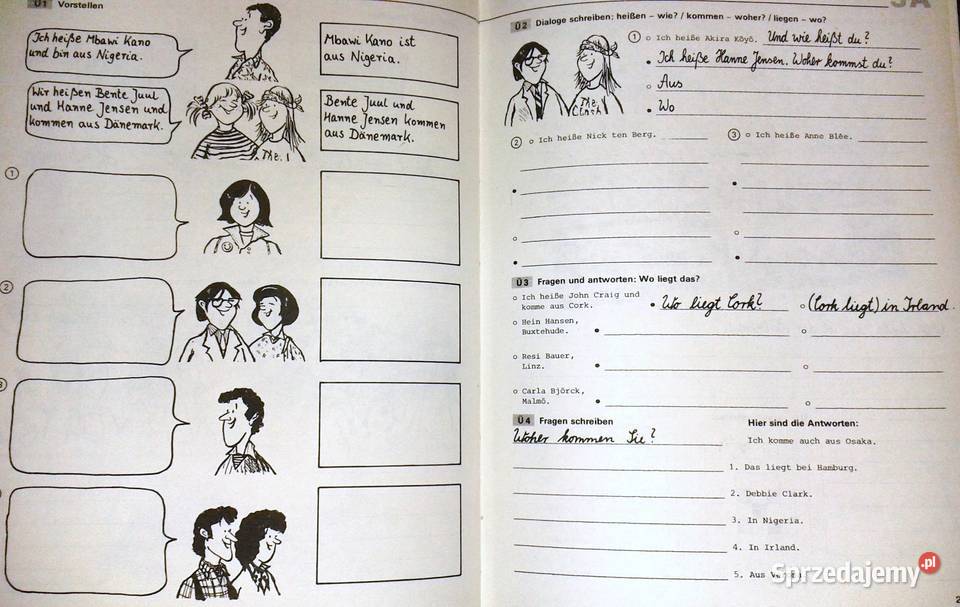 Ü1 Vorstellen
Ich heiße Mbawi Kano
und bin aus Nigeria.
Mbawi Kano ist
aus Nigeria.
Wir heißen Bente Juul
und Hanne Jensen und
kommen aus Dänemark.
The
Bente Juul und
Hanne Jensen kommen
aus Dänemark.
1
2
3
3A
Ü2 Dialoge schreiben: heißen – wie? / kommen – woher? / liegen – wo?
The
Clash
1 o Ich heiße Akira Kōyō. Und wie heißt du?
• Ich heiße Hanne Jensen. Woher kommst du?
o Aus
• Wo
2 o Ich heiße Nick ten Berg.
•
o
•
3 o Ich heiße Anne Blée.
•
o
•
Ü3 Fragen und antworten: Wo liegt das?
o Ich heiße John Craig und
komme aus Cork.
• Wo liegt Cork?
o (Cork liegt) in Irland.
o Hein Hansen,
Buxtehude.
•
o
o Resi Bauer,
Linz.
•
o
o Carla Björck,
Malmö.
•
o
Ü4 Fragen schreiben
Hier sind die Antworten:
Woher kommen Sie?
Ich komme auch aus Osaka.
1. Das liegt bei Hamburg.
2. Debbie Clark.
3. In Nigeria.
4. In Irland.
5. Aus
Sprzedajemy.pl
2